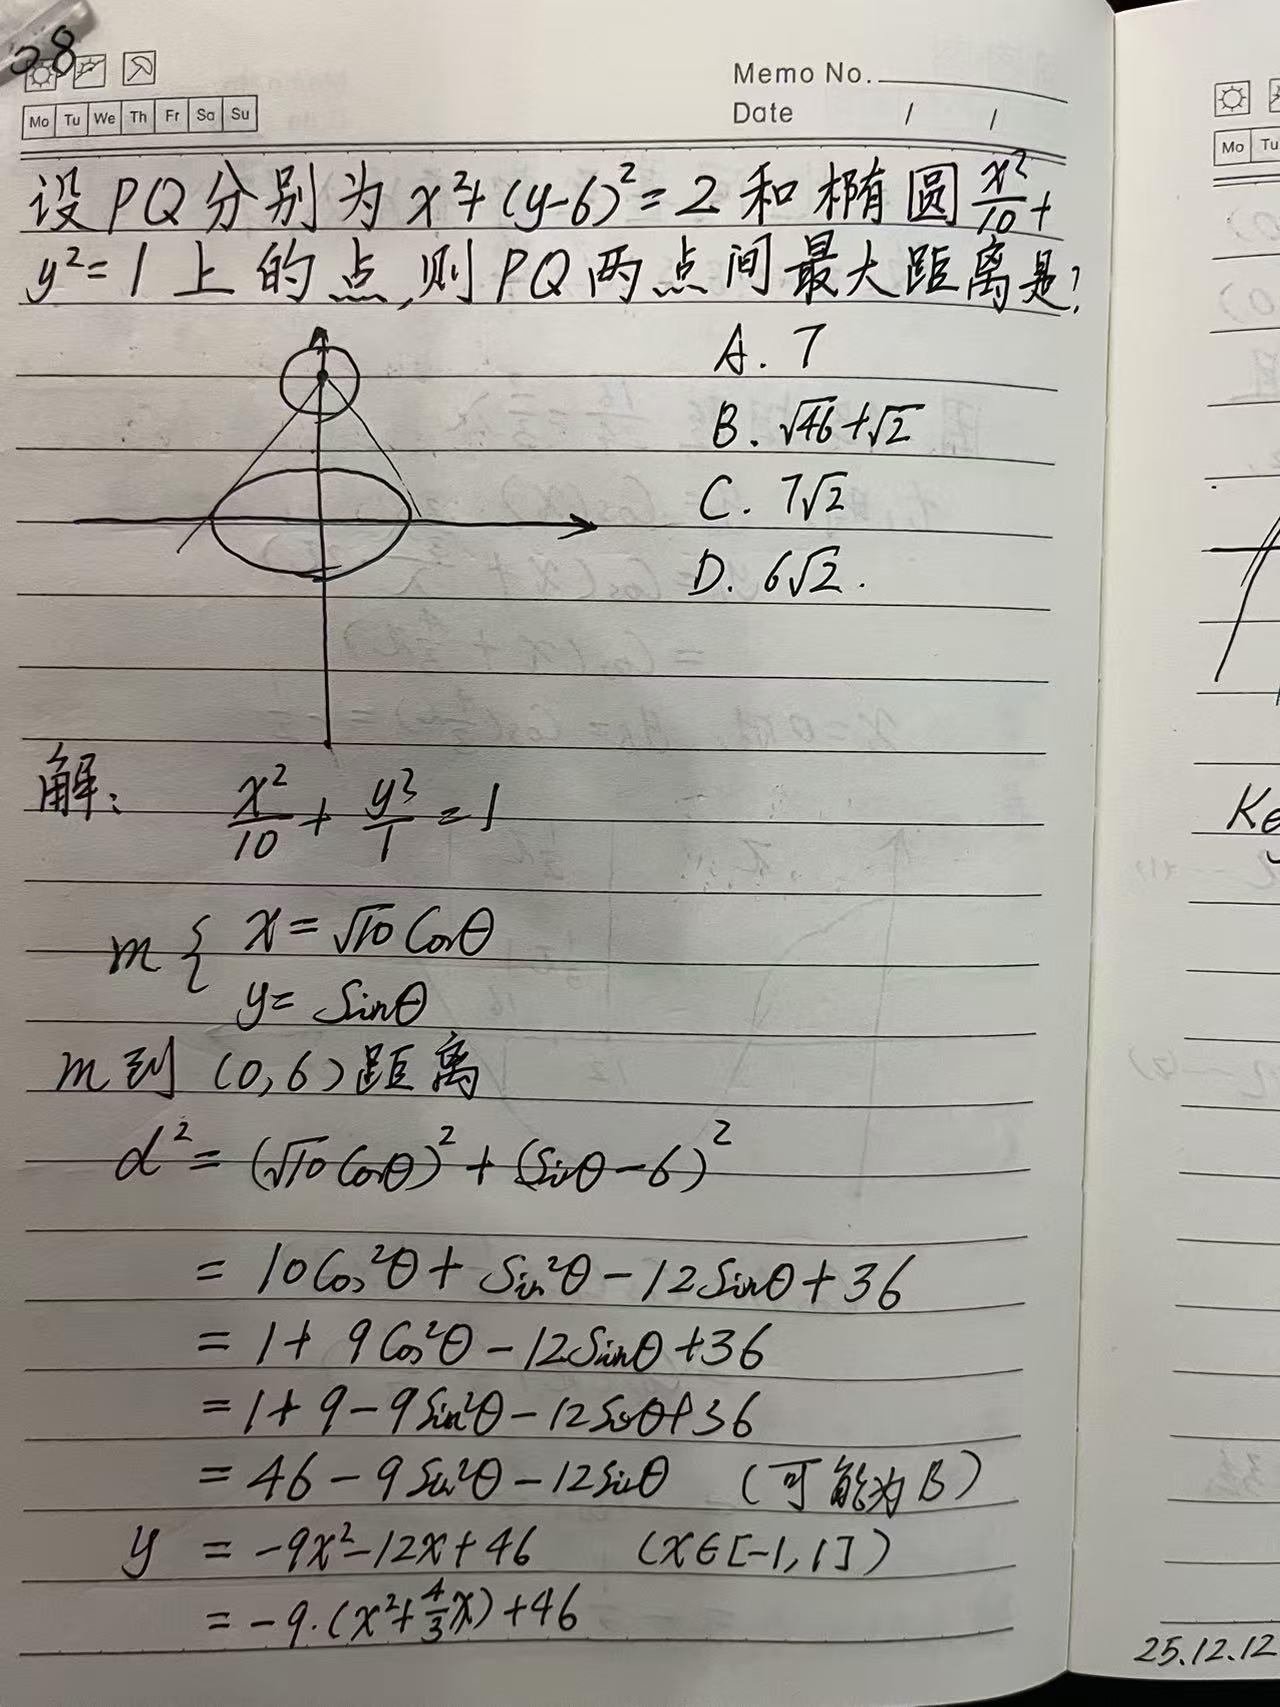 28
Mo Tu We Th Fr Sa Su
Memo No.
Date / /
设PQ分别为x²+(y-6)²=2和椭圆x²/10+
y²=1上的点,则PQ两点间最大距离是?
A. 7
B. √46+√2
C. 7√2
D. 6√2.
解: x²/10 + y²/1 = 1
m { x=√10 Cosθ
y= Sinθ
m到(0,6)距离
d²=(√10 Cosθ)²+(Sinθ-6)²
= 10Cos²θ+Sin²θ-12Sinθ+36
= 1+9Cos²θ-12Sinθ+36
= 1+9-9Sin²θ-12Sinθ+36
= 46-9Sin²θ-12Sinθ (可能为B)
y = -9x²-12x+46 (x∈[-1,1])
= -9·(x²+4/3x)+46
Mo Tu
25.12.12